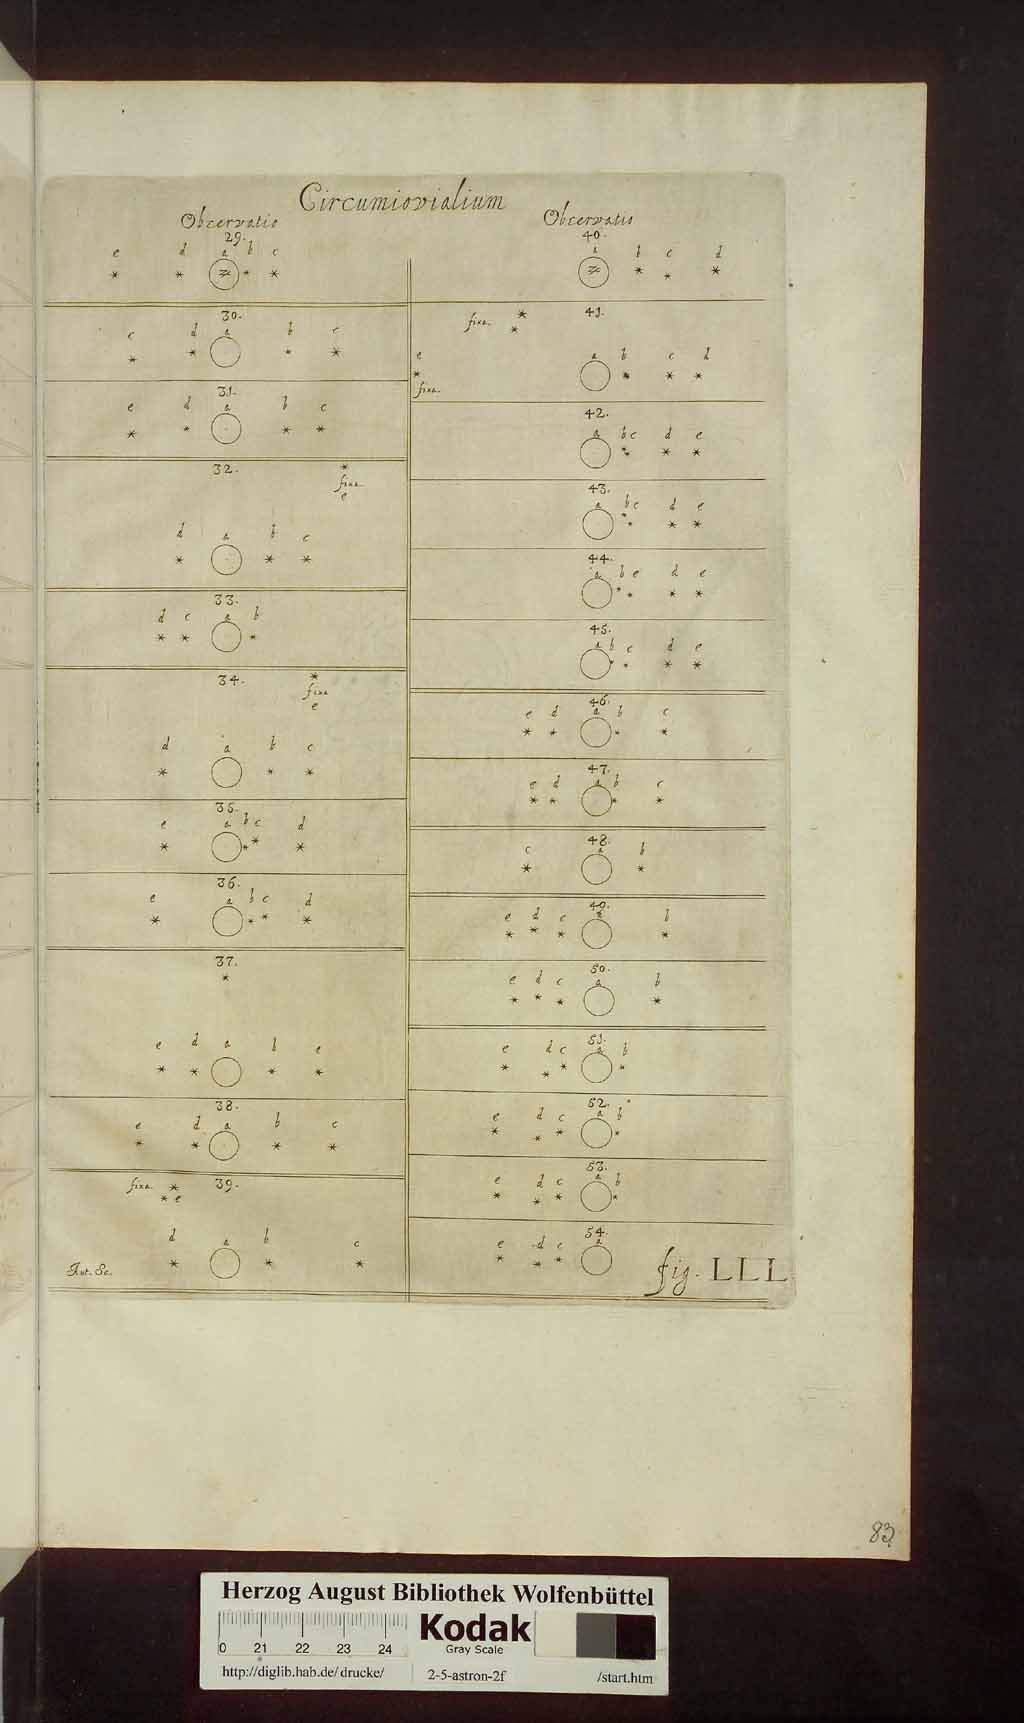 Circumiovialium
Observatio
29.
e d a b c
30.
c d a b e
31.
e d a b c
32.
fixa
e
d a b c
33.
d c a b
34.
fixa
e
d a b c
35.
e a b c d
36.
e a b c d
37.
e d a b c
38.
e d a b c
39.
fixa
e
d a b c
Aut. Sc.
Observatio
40.
a b c d
41.
fixa.
e a b c d
fixa.
42.
a b c d e
43.
a b c d e
44.
a b c d e
45.
a b c d e
46.
e d a b c
47.
e d a b c
48.
c a b
49.
e d c a b
50.
e d c a b
51.
e d c a b
52.
e d c a b
53.
e d c a b
54.
e d c a
fig. LLL
83
Herzog August Bibliothek Wolfenbüttel
0 21 22 23 24
Kodak
Gray Scale
http://diglib.hab.de/drucke/ 2-5-astron-2f /start.htm